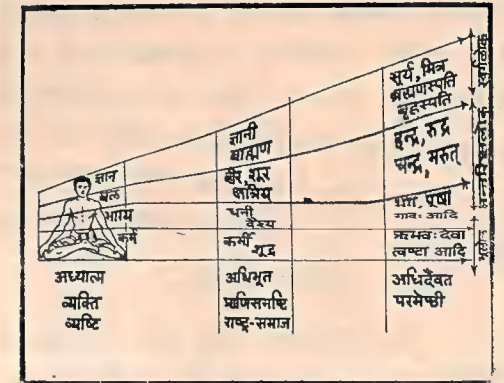 ज्ञान
बल
भाग्य
कर्म
अध्यात्म
व्यक्ति
व्यष्टि
ज्ञानी
ब्राह्मण
वीर, शूर
क्षत्रिय
धनी
वैश्य
कर्मी
शूद्र
अधिभूत
प्राणिसमष्टि
राष्ट्र-समाज
सूर्य, मित्र
ब्रह्मणस्पति
बृहस्पति
इन्द्र, रुद्र
चन्द्र, मरुत्
भग, पूषा
गावः आदि
ऋभवः देवा
त्वष्टा आदि
अधिदैवत
परमेष्ठी
स्वर्गलोक
अन्तरिक्षलोक
भूलोक